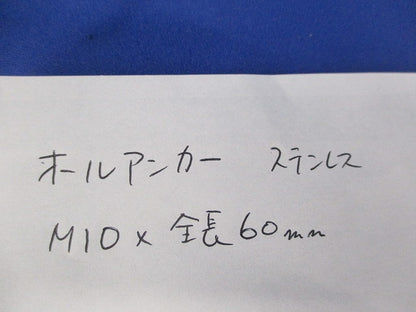 ホールアンカー ステンレス
M10 × 全長60mm